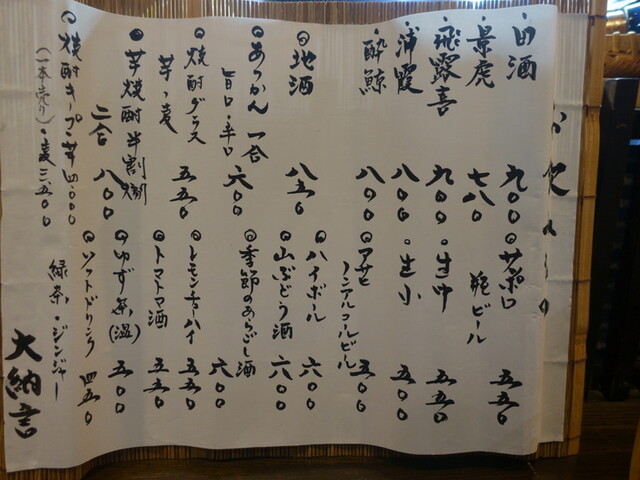 ・田酒 九〇〇
・景虎 七八〇
・飛露喜 九〇〇
・浦霞 八〇〇
・酔鯨 八〇〇
◎地酒 八五〇
◎あつかん 一合 六〇〇
旨口・辛口
二合 八〇〇
◎焼酎グラス 五五〇
芋・麦
◎芋焼酎半割
◎焼酎キープ・芋四、〇〇〇
(一本売り)・麦三五〇〇
・サッポロ
瓶ビール 五五〇
・生中 五五〇
・生小 五〇〇
◎アサヒ
ノンアルコールビール 五〇〇
◎ハイボール 六〇〇
◎山ぶどう酒 六〇〇
◎季節のあらごし酒 六〇〇
◎レモンチューハイ 五五〇
◎トマトマ酒 五五〇
◎ゆず茶(温) 五〇〇
◎ソフトドリンク 四五〇
緑茶・ジンジャー
大納言